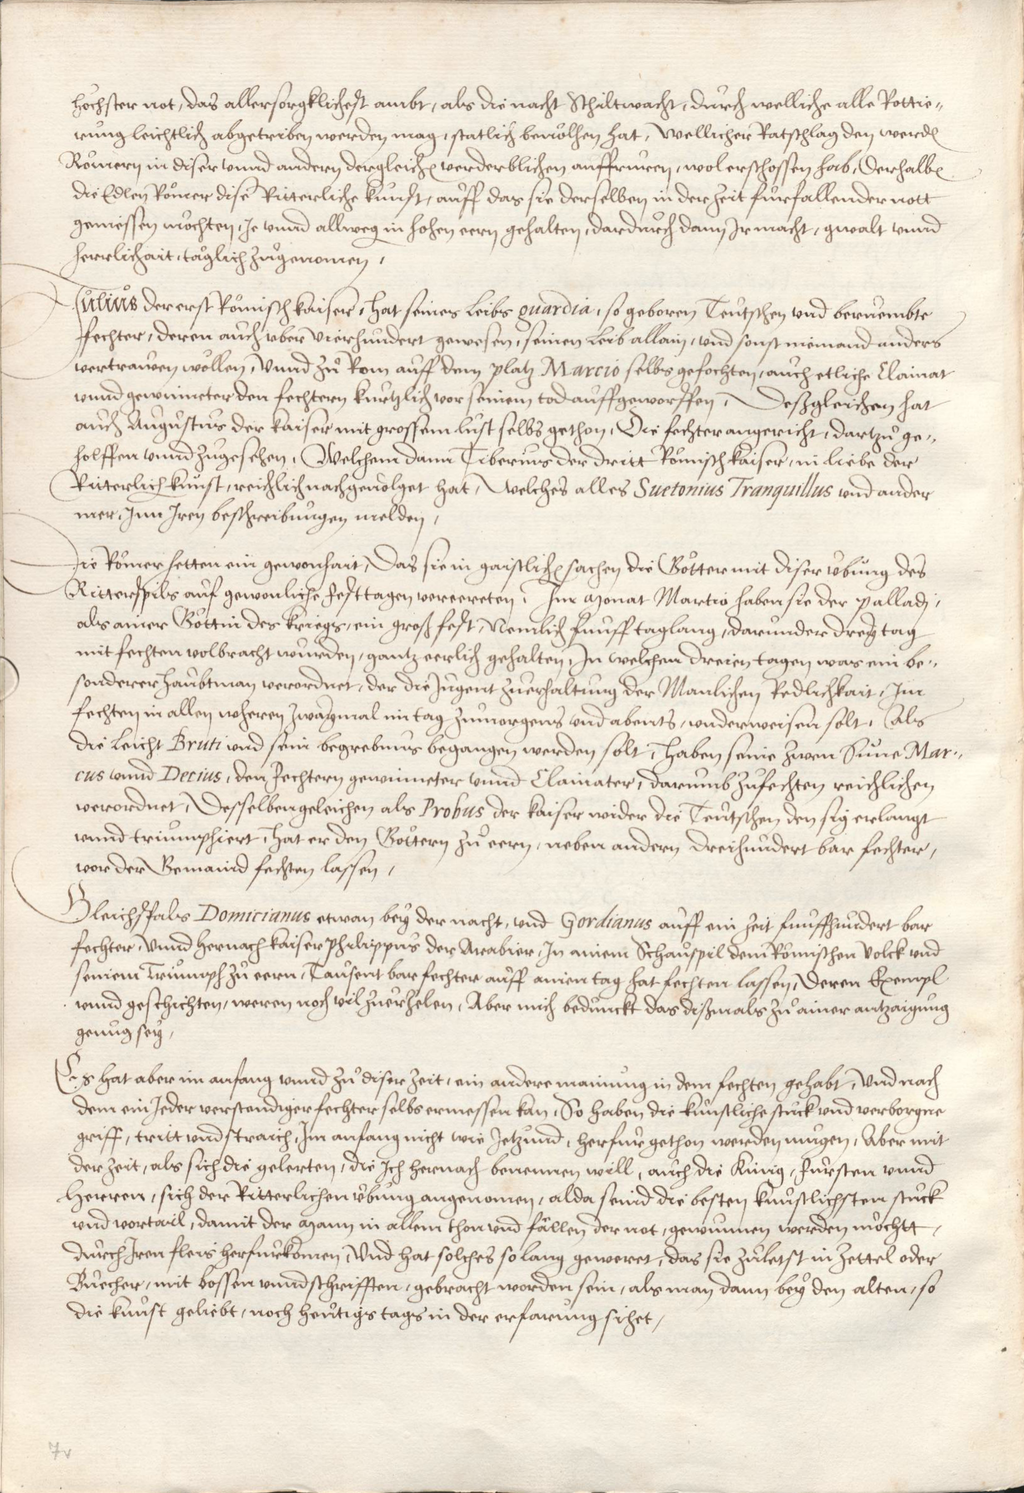 höchster not, das allersorgklichest ambt, als die nacht Schiltwacht, durch welliche alle Rottie-
rung leichtlich abgetriben werden mag, statlich bevolhen hat, Wellicher Ratschlag den werdẽ
Römern in diser vnnd andern dergleichẽ verderblichen auffruren, wol erschossen hab, Derhalbẽ
die Edlen Römer dise Ritterliche kunst, auff das sie derselben in der Zeit fürfallender nott
geniessen möchten, Je vnnd allweg in hohen eern gehalten, dardurch dann Ir macht, gwalt vnnd
herrlichait, täglich zugenomen,
Julius der erst Römisch kaiser, hat seines Leibs guardia, so geboren Teutschen vnd beruembte
fechter, deren auch vber vierhundert gewesen, seinen Leib allain, vnd sonst niemand anders
vertrauen wöllen, Vnnd zu Rom auff dem platz Marcio selbs gefochten, auch etliche Clainat
vnnd gewinneter den fechtern kurtzlich vor seinem tod auffgeworffen, Deßgleichen hat
auch Augustus der kaiser mit grossem lust selbs gethon, Die fechter angericht, dartzu ge-
holffen vnnd zugesehen, Welchem dann Tiberius der dritt Römisch kaiser, in liebe der
Ritterlich kunst, reichlich nachgevolget hat, Welches alles Suetonius Tranquillus vnd ander
mer, Inn Iren beschreibungen melden,
Die Römer hetten ein gewonhait, Das sie in gaistlichẽ sachen die Götter mit diser vbung des
Ritterspils auf gewonliche festtagen vereereten, Im Monat Martio haben sie der Palladi,
als ainer Göttin des kriegs, ein groß fest, Nemlich funff taglang, darunder drey tag
mit fechten volbracht wurden, gantz eerlich gehalten, In welchen dreien tagen was ein be-
sonderer haubtman verordnet, der die Jugent zuerhaltung der Manlichen Redlichkait, Im
fechten in allen wheren zwaymal im tag zumorgens vnd abents, vnderweisen solt, Als
die Leicht Bruti vnd sein begrebnus begangen werden solt, haben seine zwen Süne Mar-
cus vnnd Decius, den fechtern gewinneter vnnd Clainater, darumb zufechten reichlichen
verordnet, Desselbengeleichen als Probus der kaiser wider die Teutschen den sig erlangt
vnnd triumphiert, hat er den Göttern zu eern, neben andern dreihundert bar fechter,
vor der Gemaind fechten lassen,
Gleichsfals Domicianus etwan bey der nacht, vnd Gordianus auff ein Zeit funffhundert bar
fechter, Vnnd hernach kaiser Philippus der Arabier, In ainem Schauspil dem Römischen Volck vnd
seinem Triumph zu eern, Tausent bar fechter auff ainen tag hat fechten lassen, Deren Exempl
vnnd geschichten, weren noch vil zuerzelen, Aber mich bedunckt das dißmals zu ainer antzaigung
genug sey,
Es hat aber im anfang vnnd zu diser Zeit, ein andere mainung in dem fechten gehabt, Vnd nach
dem ein Jeder verstendiger fechter selbs ermessen kan, So haben die kunstliche stuck vnd verborgne
griff, tritt vnd straich, Im anfang nicht wie Jetzund, herfur gethon werden mugen, Aber mit
der zeit, als sich die gelerten, die Ich hernach benennen will, auch die Küng, Fursten vnnd
Herren, sich der Ritterlichen vbung angenomen, alda seind die besten kunstlichsten stuck
vnd vortail, damit der Mann in allem thon vnd fällen der not, gewunnen werden möcht,
durch Iren fleis herfurkomen, Vnd hat solches so lang geweret, das sie zuletst in Zettel oder
Buecher, mit bossen vnnd schrifften, gebracht worden sein, als man dann bey den alten, so
die kunst geliebt, noch heutigs tags in der erfarung sihet,
7v